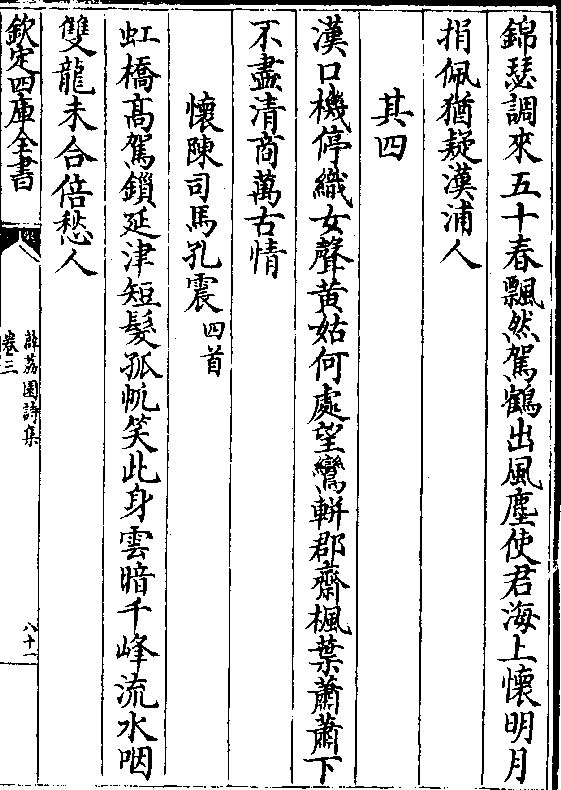 錦瑟調來五十春飄然駕鶴出風塵使君海上懷明月
捐佩猶疑漢浦人
其四
漢口機停織女聲黄姑何處望鸞軿郡齋楓葉蕭蕭下
不盡清商萬古情
懷陳司馬孔震四首
虹橋髙駕鎖延津短髮孤帆笑此身雲暗千峰流水咽
雙龍未合倍愁人
欽定四庫全書
薜荔園詩集
卷三